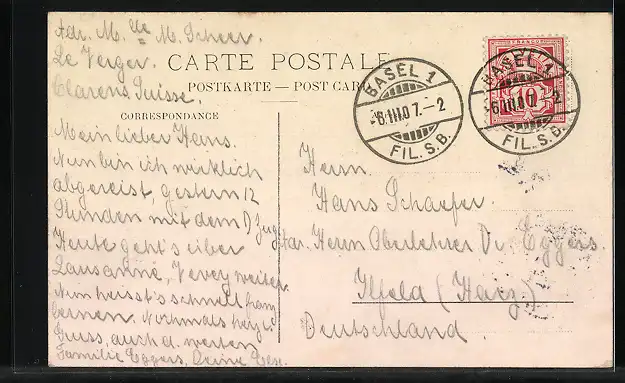 Adr. M.lle M. Scheer.
Le Verger.
Clarens Suisse.
CARTE POSTALE
POSTKARTE — POST CARD
CORRESPONDANCE
Mein lieber Hans.
Nun bin ich wirklich
abgereist, gestern 12
Stunden mit dem D Zug
Heute geht's über
Lausanne, Vevey weiter.
Nun heisst's schnell
Nochmals herzl.
Gruss, auch d. werten
Familie Eggers, Deine
BASEL 1
-6.III.07.-2
FIL. S.B.
FRANCO
10
BASEL 1
-6.III.07.-2
FIL. S.B.
Herrn
Hans Schaefer.
Adr. Herrn Oberlehrer Dr. Eggers.
Ilfeld (Harz)
Deutschland.